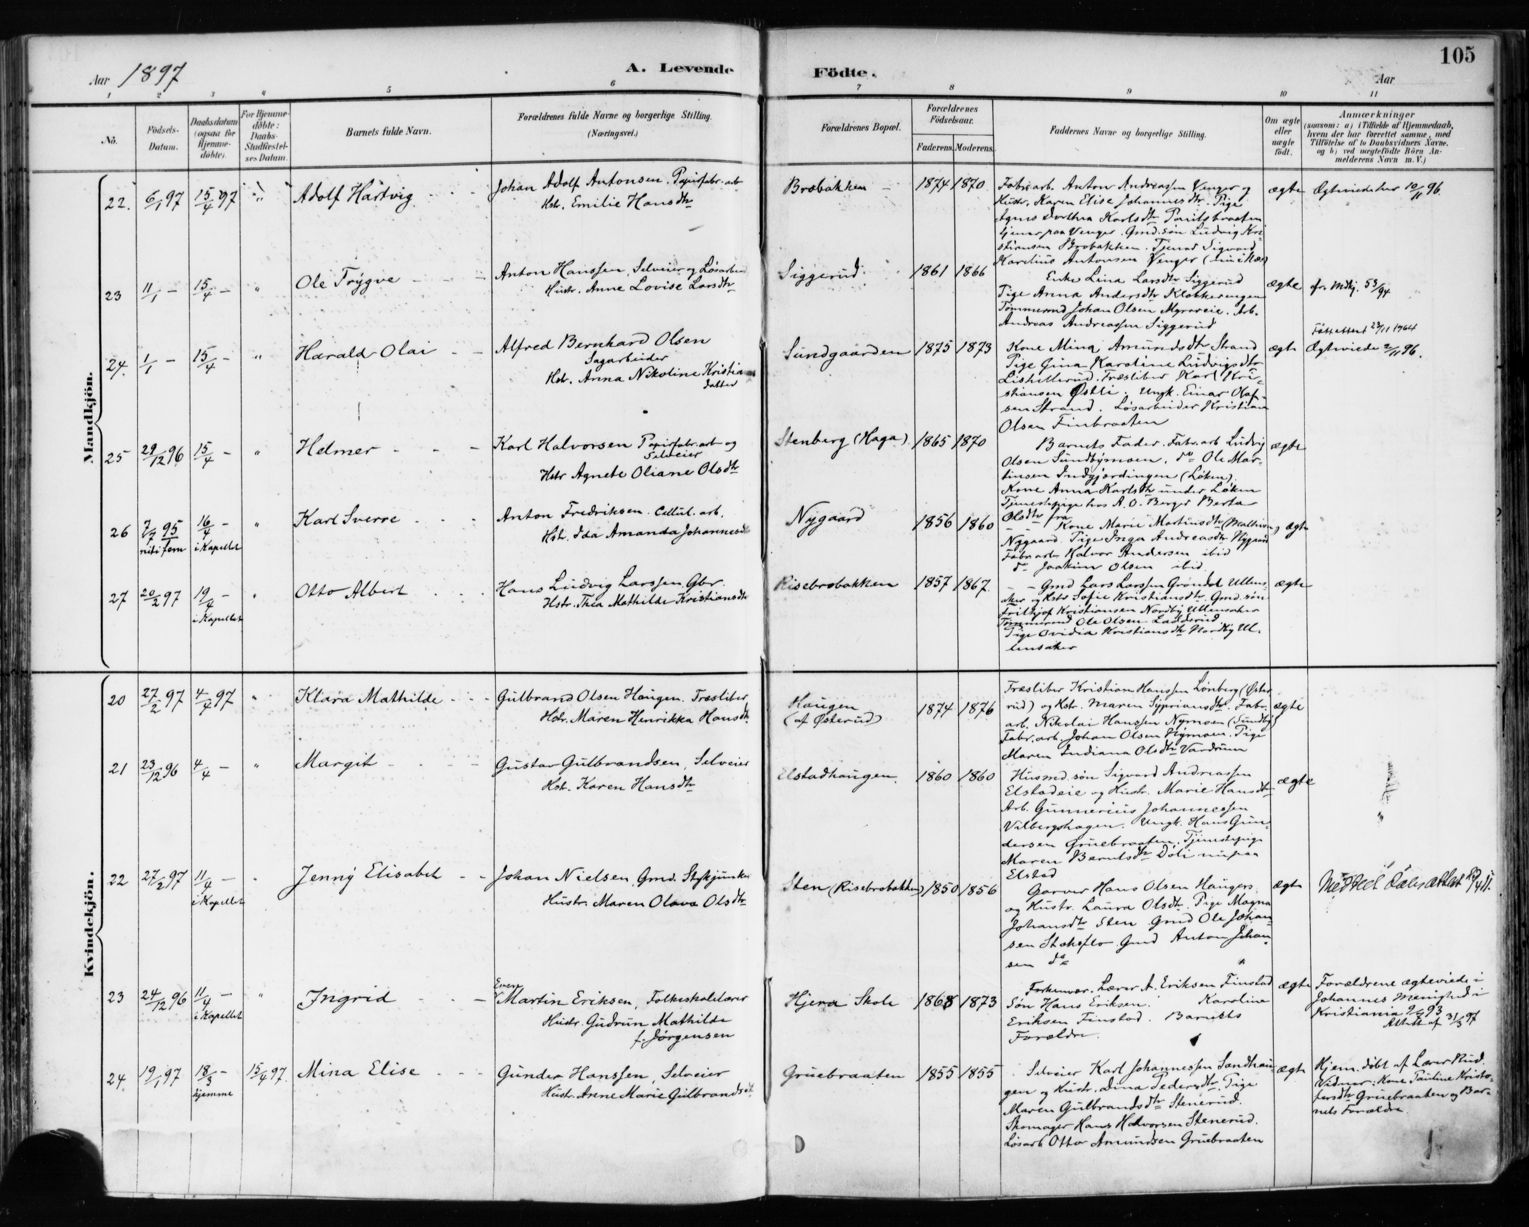 105
Aar 1897
A. Levende Födte.
Aar
1 2 3 4 5 6 7 8 9 10 11
No.
Födsels-Datum.
Daabsdatum (ogsaa for Hjemme-döbte).
For Hjemme-döbte: Daabs-Stadfæstel-ses Datum.
Barnets fulde Navn.
Forældrenes fulde Navne og borgerlige Stilling.
(Næringsvei.)
Forældrenes Bopæl.
Forældrenes Födselsaar.
Faderens. Moderens.
Faddernes Navne og borgerlige Stilling.
Om ægte eller uægte födt.
Anmærkninger
(saasom: a) i Tilfælde af Hjemmedaab, hvem der har forrettet samme, med Tilföielse af to Daabsvidners Navne. og b) ved uægtefödte Börn An-melderens Navn m. V.)
Mandkjön.
22. 6/1 97 15/4 97 " Adolf Hartvig
Johan Adolf Antonsen. Papirfabr. arb
Hst. Emilie Hansdtr
Brobakken 1874 1870
Fabr. arb. Anton Andreassen Venger og
Hustr. Karen Elise Johannesdtr. Pige
Agnes Dorthea Karlsdtr
tjener paa Venger. Gmd. søn Ludvig Kri
stiansen Brobakken. Tjener Sigvard
Marelius Antonsen Venger
ægte Ægteviede her 10/11 96.
23 11/1 – 15/4 – " Ole Trygve
Anton Hanssen, Selveier og Løsarbeider
Hustr. Anne Lovise Larsdtr
Siggerud 1861 1866
Enke Lina Larsdtr Siggerud
Pige Anna Andersdtr Klokkerengen
Tømmermd Johan Olsen Myrereie. Arb.
Andreas Andreassen Siggerud
ægte cfr. Mdkj. 53/94
24. 1/1 – 15/4 – " Harald Olai
Alfred Bernhard Olsen
Sagarbeider
Hst. Anna Nikoline Kristians
datter
Sundgaarden 1875 1873
Kone Mina Amundsdtr Strand
Pige Gina Karoline Ludvigsdtr
Træsliber Karl Kri-
stiansen Østli. Ungk. Einar Olaf-
sen Strand. Løsarbeider Kristian
Olsen Finbraaten
ægte
Ægteviede 2/11 96.
25 29/12 96 15/4 – Helmer
Karl Halvorsen Papirfabr. arb og
Selveier
Hstr Agnete Oliane Olsdtr
Stenberg (Haga) 1865 1870
Barnets Fader. Fabr. arb Ludvig
Olsen Sundbymoen, do Ole Mar-
tinsen Indgjærdingen (Løken)
Kone Anna Karlsdtr under Løken
Tjenestepige hos A. O. Berger Berta
Olsdtr fra
ægte
26 7/7 95 niti fem 16/4 – i Kapellet " Karl Sverre
Anton Fredriksen. Cellul. arb.
Hst. Ida Amanda Johannesdtr
Nygaard 1856 1860
Kone Marie Martinsdtr
Nygaard. Pige Inga Andreasdtr Nygaard
Fabr arb Halvor Andersen ibid
do Joakim Olsen ibid.
ægte
27 20/2 97 19/4 – i Kapellet " Otto Albert
Hans Ludvig Larssen Gbr.
Hstr. Thea Mathilde Kristiansdtr
Risebrobakken 1857 1867.
Gmd Lars Larssen Grøndal Ullens
aker og Hstr Sofie Kristiansdtr. Gmd. søn
Fritjof Kristiansen Nordby Ullensaker
Tømmermd Ole Olsen
Pige Ovidia Kristiansdtr Nordby Ul-
lensaker
ægte
Kvindekjön.
20 27/2 97 4/4 97 " Klara Mathilde
Gulbrand Olsen Haugen. Træsliber
Hstr. Maren Henrikka Hansdtr
Haugen
(af Østerud) 1874 1876
Træsliber Kristian Hanssen Lønberg (Øste
rud) og Hst. Maren Sypriansdtr. Fabr.
arb. Nikolai Hanssen Nymoen (Sundby)
Fabr. arb. Johan Olsen Nymoen. Pige
Maren Indiana Olsdtr Vardrum
ægte
21 23/12 96 4/4 – " Margit
Gustav Gulbrandsen, Selveier
Hst. Karen Hansdtr
Elstadhaugen 1860 1860
Husmd. søn Sigvard Andreassen
Elstadeie og Hustr. Marie Hansdtr
Arb. Gunnerius Johannessen
Vilbergshagen. Ungk. Hans Gun-
dersen Gruebraaten. Tjenestepige
Maren Berntsdtr Døli nu paa
Elstad
ægte
22 27/2 97 11/4 – i Kapellet " Jenny Elisabet
Johan Nielsen, Gmd. Stykjunker
Hustr. Maren Olava Olsdtr
Sten (Risebrobakken) 1850 1856
Garver Hans Olsen Haugers
og Hustr. Laura Olsdtr. Pige Magna
Johansdtr Sten Gmd Ole Johan-
sen Gmd Anton Johan
sen do
ægte
23 24/12 96 11/4 – i Kapellet " Ingrid
Even
Martin Eriksen, Folkeskolelærer
Hustr. Gudrun Mathilde
f. Jørgensen
Hjera Skole 1868 1873
Forhenvær. Lærer A. Eriksen Finstad
Søn Hans Eriksen. Karoline
Eriksen Finstad. Barnets
Forældre.
ægte Forældrene ægteviede i
Johannes Menighed i
Kristiania 93
Attest af 31/3 97
24. 19/1 97 18/3 – hjemme 15/4 97. Mina Elise
Gunder Hanssen, Selveier
Hustr. Anne Marie Gulbrandsdtr
Gruebraaten 1855 1855
Selveier Karl Johannessen Sandhau
gen og Hustr. Lina Pedersdtr. Pige
Maren Gulbrandsdtr Stenerud.
Skomager Hans Halvorsen Stenerud.
Løsarb Otto Amundsen Gruebraaten
ægte Hjem. døbt af Lærer Rud
Vidner: Kone Pauline Kristo-
fersdtr Gruebraaten og Bar-
nets Forældre